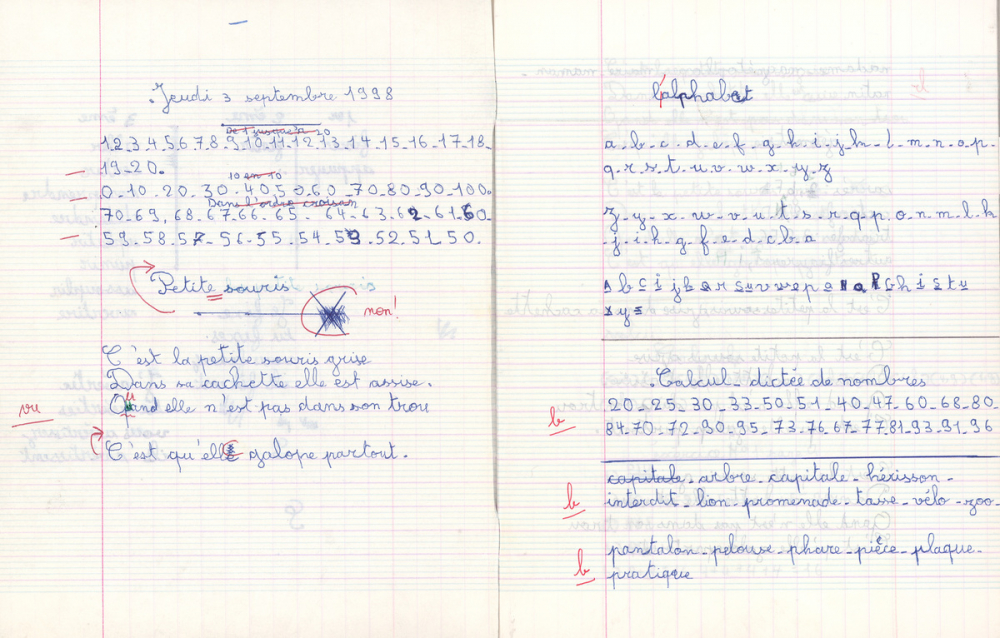 Jeudi 3 septembre 1998
De 1 jusqu'à 20
1.2.3.4.5.6.7.8.9.10.11.12.13.14.15.16.17.18.
19.20.
10 en 10
0.10.20.30.40.50.60.70.80.90.100.
Dans l'ordre
70.69.68.67.66.65.64.63.62.61.60.
59.58.57.56.55.54.53.52.51.50.
Petite souris
non!
C'est la petite souris grise
Dans sa cachette elle est assise.
Quand elle n'est pas dans son trou
vu
C'est qu'elle galope partout.
l'alphabet
a.b.c.d.e.f.g.h.i.j.k.l.m.n.o.p.
q.r.s.t.u.v.w.x.y.z
z.y.x.w.v.u.t.s.r.q.p.o.n.m.l.k
j.i.h.g.f.e.d.c.b.a
Calcul - dictée de nombres
20-25-30-33-50-51-40-47-60-68-80
b
84-70-72-90-95-73-76-67-77-81-93-91-96
capitale - arbre - capitale - hérisson -
b
interdit - lion - promenade - tasse - vélo - zoo
pantalon - pelouse - phare - pièce - plaque -
b
pratique